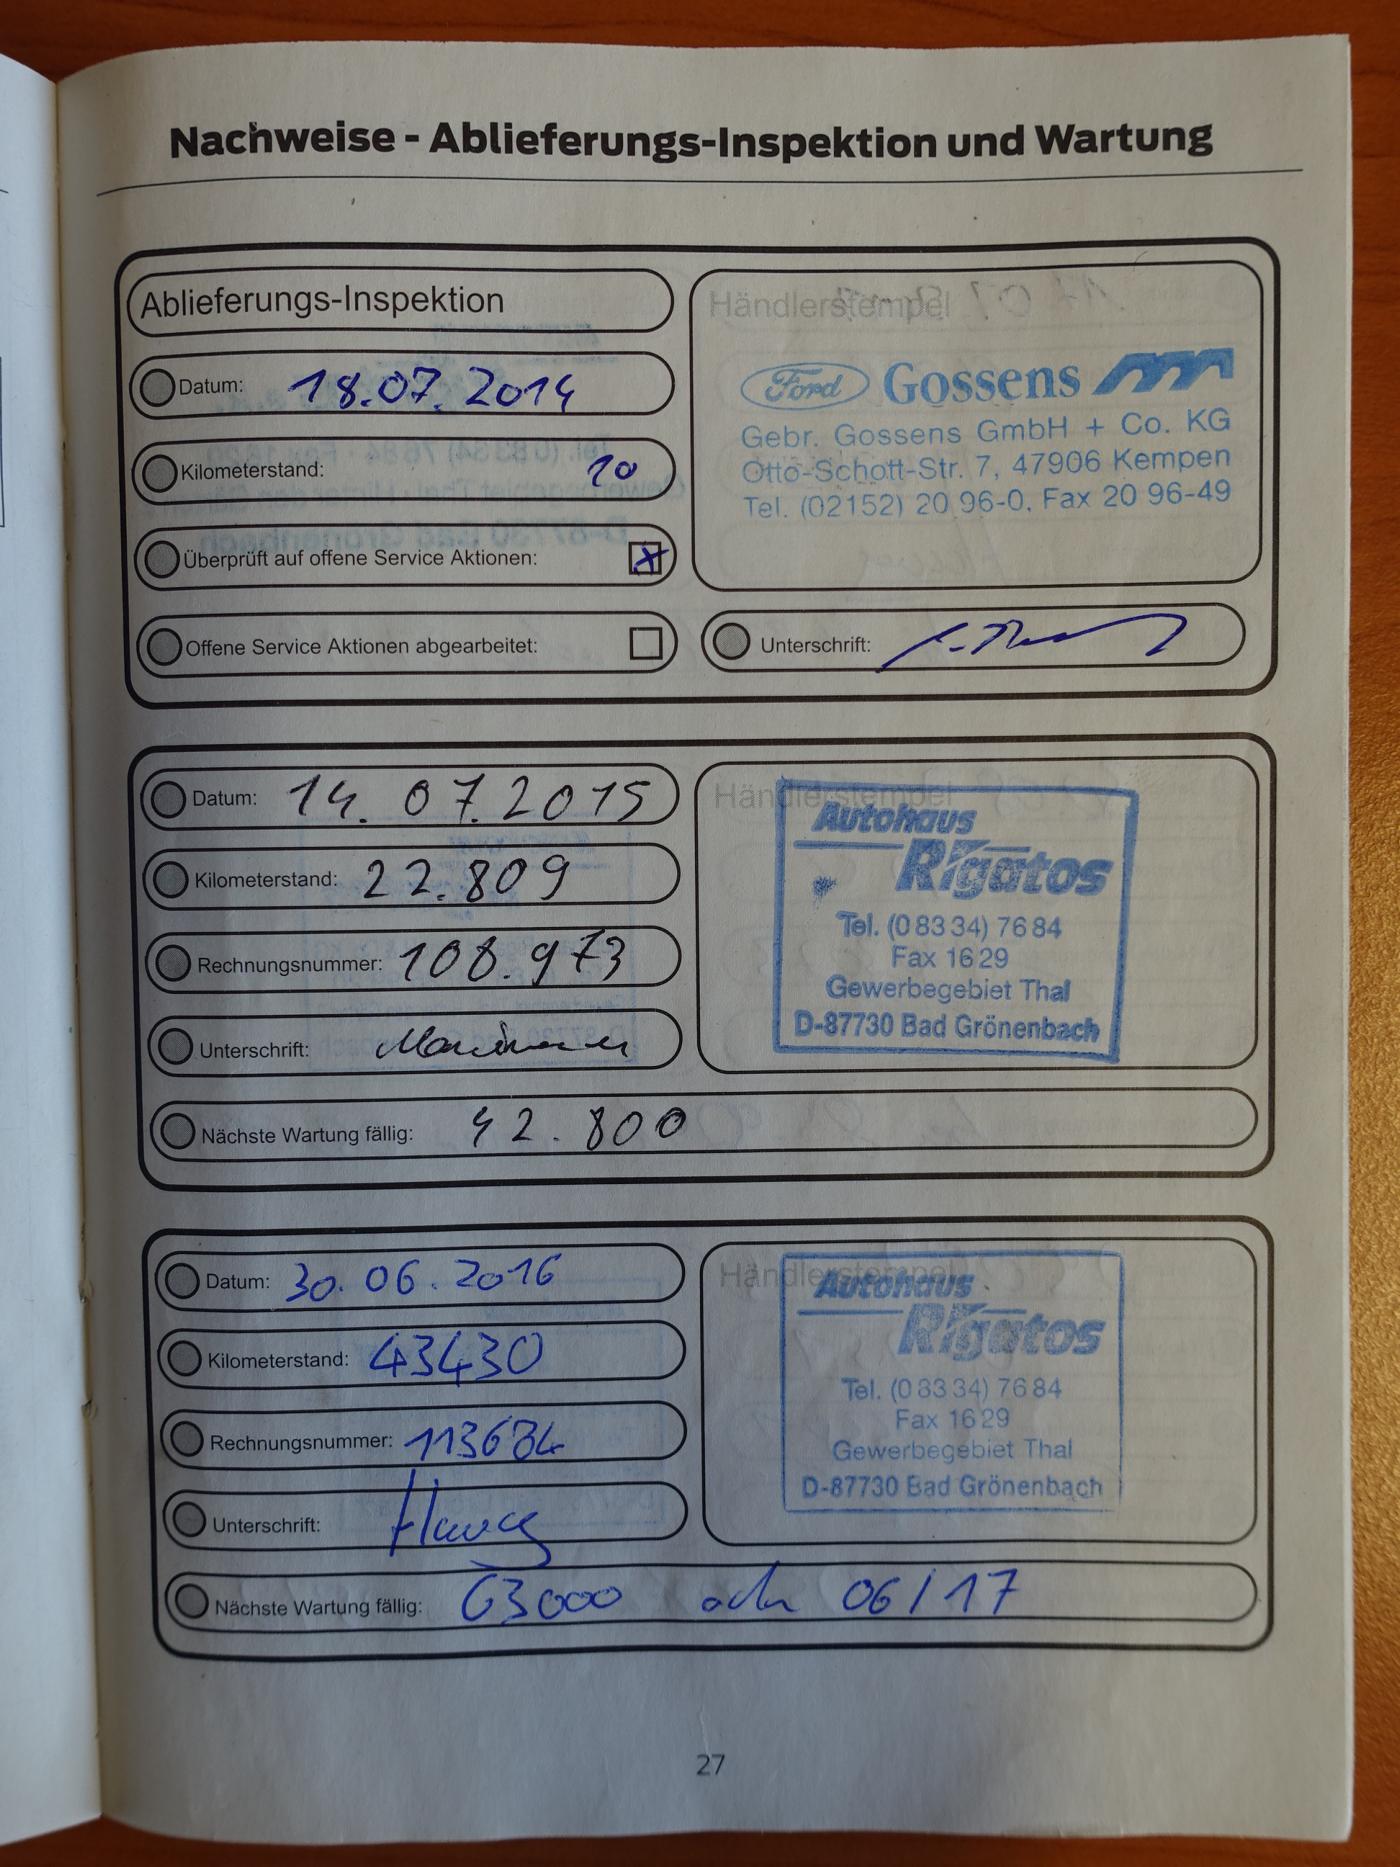 Nachweise - Ablieferungs-Inspektion und Wartung
Ablieferungs-Inspektion
Datum: 18.07.2014
Kilometerstand: 10
Überprüft auf offene Service Aktionen: X
Offene Service Aktionen abgearbeitet:
Händlerstempel
Ford Gossens
Gebr. Gossens GmbH + Co. KG
Otto-Schott-Str. 7, 47906 Kempen
Tel. (02152) 20 96-0, Fax 20 96-49
Unterschrift:
Datum: 14.07.2015
Kilometerstand: 22.809
Rechnungsnummer: 108.973
Unterschrift:
Händlerstempel
Autohaus
Rigatos
Tel. (0 83 34) 76 84
Fax 16 29
Gewerbegebiet Thal
D-87730 Bad Grönenbach
Nächste Wartung fällig: 42.800
Datum: 30.06.2016
Kilometerstand: 43430
Rechnungsnummer: 113634
Unterschrift:
Händlerstempel
Autohaus
Rigatos
Tel. (0 83 34) 76 84
Fax 16 29
Gewerbegebiet Thal
D-87730 Bad Grönenbach
Nächste Wartung fällig: 63000 oder 06/17
27